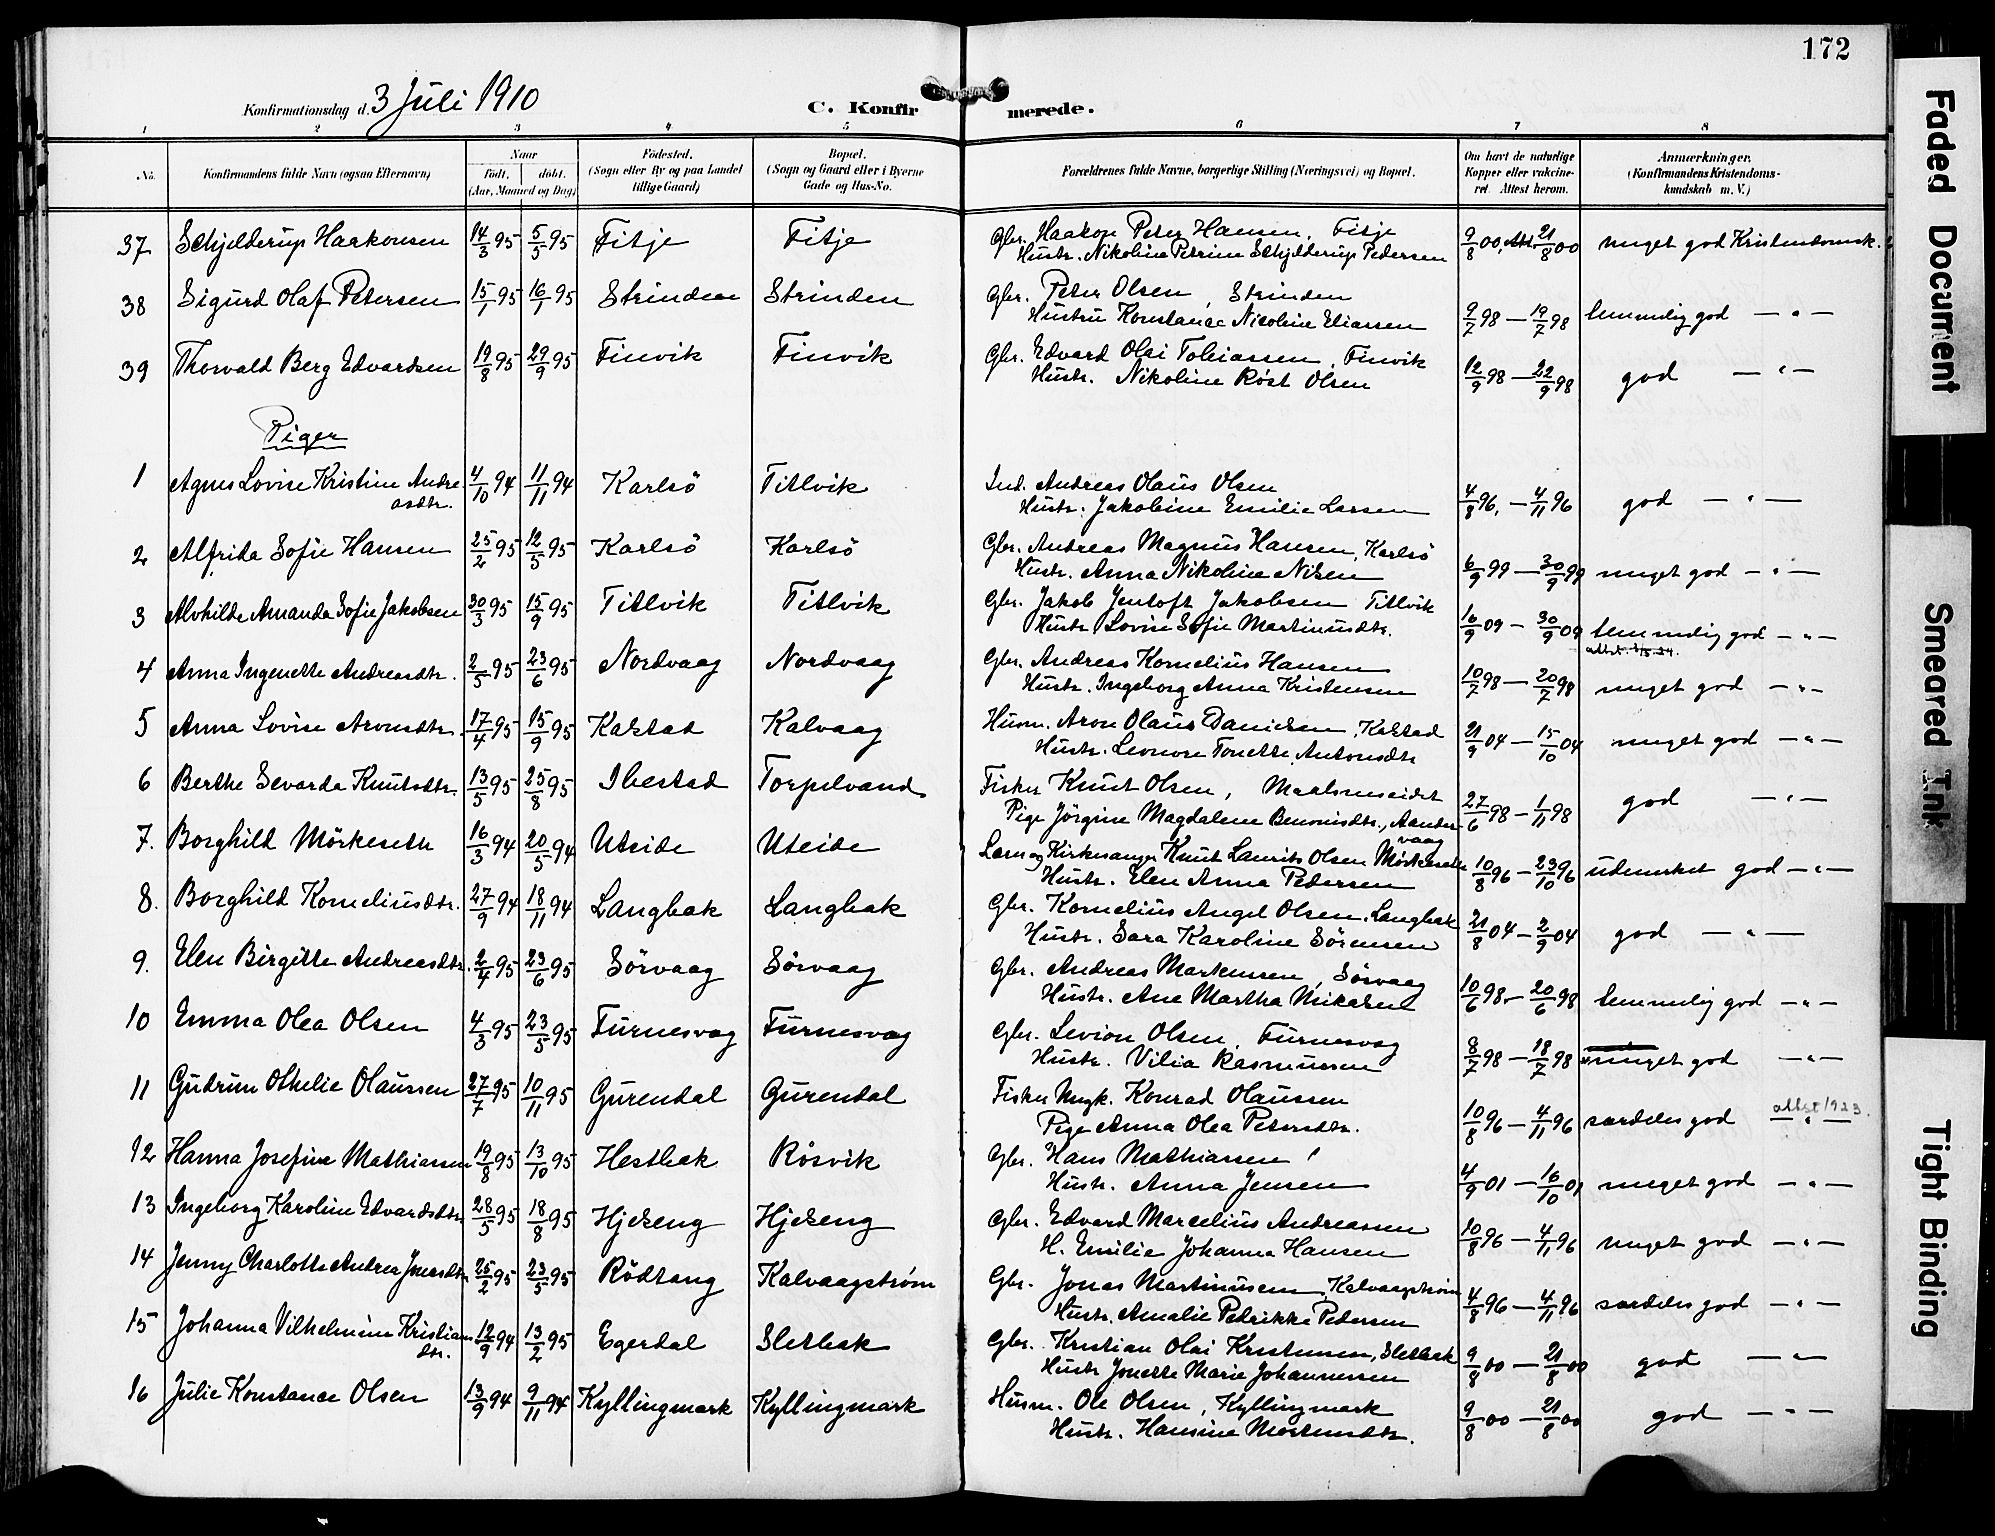 172
Konfirmationsdag d. 3 Juli 1910
C. Konfirmerede.
1 2 3 4 5 6 7 8
No.
Konfirmandens fulde Navn (ogsaa Efternavn)
Naar født. døbt. (Aar, Maaned og Dag)
Fødested. (Sogn eller By og paa Landet tillige Gaard)
Bopæl. (Sogn og Gaard eller i Byerne Gade og Hus-No.
Forældrenes fulde Navne, borgerlige Stilling (Næringsvei) og Bopæl.
Om havt de naturlige Kopper eller vakcineret. Attest herom.
Anmærkninger. (Konfirmandens Kristendomskundskab m. V.)
37 Schjelderup Haakonsen 14/3 95 5/5 95 Fitje Fitje Gbr. Haakon Peter Hansen, Fitje 9/8 00, Att. 21/8 00 meget god Kristendomsk.
Hustr. Nikoline Petrine Schjelderup Pedersen
38 Sigurd Olaf Petersen 15/1 95 16/1 95 Strinden Strinden Gbr. Peter Olsen, Strinden 9/7 98 — 19/7 98 temmelig god — " —
Hustru Konstance Nicoline Eliassen
39 Thorvald Berg Edvardsen 19/8 95 29/9 95 Finvik Finvik Gbr. Edvard Olai Tobiassen, Finvik 12/9 98 — 22/9 98 god — " —
Hustr. Nikoline Røst Olsen
Piger
1 Agnes Lovise Kristine Andreasdtr. 4/10 94 11/11 94 Karlsö Titlvik Ind. Andreas Olaus Olsen 4/8 96, — 4/11 96 god — " —
Hustr. Jakobine Emilie Larsen
2 Alfrida Sofie Hansen 25/2 95 12/5 95 Karlsö Karlsö Gbr. Andreas Magnus Hansen, Karlsö 6/9 99 — 30/9 99 meget god — " —
Hustr. Anna Nikoline Nilsen
3 Alvhilde Amanda Sofie Jakobsen 30/3 95 15/9 95 Titlvik Titlvik Gbr. Jakob Jentoft Jakobsen Titlvik 16/9 09 — 30/9 09 temmelig god — " —
Hustr. Lovise Sofie Martinusdtr.
4 Anna Ingenette Andreasdtr. 2/5 95 23/6 95 Nordvaag Nordvaag Gbr. Andreas Kornelius Hansen 10/7 98 — 20/7 98 meget god — " —
Hustr. Ingeborg Anna Kristensen
5 Anna Lovise Aronsdtr. 17/4 95 15/9 95 Kalstad Kalvaag Husm. Aron Olaus Danielsen, Kalstad 21/9 04 — 15/10 04 meget god — " —
Hustr. Leonore Tonette Antonsdtr
6 Berthe Sevarda Knutsdtr. 13/5 95 25/8 95 Ibestad Torpelvand Fisker Knut Olsen, Maalsneseidet 27/6 98 — 1/11 98 god — " —
Pige Jörgine Magdalene Benonisdtr., Aandervaag
7. Borghild Mörkeseth 16/3 94 20/5 94 Uteide Uteide Lærer og Kirkesanger Knut Laurits Olsen Mörkeseth 10/8 96 — 23/10 96 udmerket god — " —
Hustr. Elen Anna Pedersen
8. Borghild Korneliusdtr. 27/9 94 18/11 94 Langbak Langbak Gbr. Kornelius Angel Olsen, Langbak 21/8 04 — 2/9 04 god — " —
Hustr. Sara Karoline Sörensen
9. Elen Birgitte Andreasdtr. 2/4 95 23/6 95 Sörvaag Sörvaag Gbr. Andreas Markussen, Sörvaag 10/6 98. — 20/6 98 temmelig god — " —
Hustr. Ane Martha Mikalsen
10 Emma Olea Olsen 4/3 95 23/5 95 Furnesvag Furnesvag Gbr. Levion Olsen, Furnesvag 8/7 98 — 18/7 98 meget god — " —
Hustr. Vilia Rasmussen
11 Gudrun Othelie Olaussen 27/7 95 10/11 95 Gurendal Gurendal Fisker Ungk. Konrad Olaussen 10/8 96 — 4/11 96 særdeles god — " — attst 1923.
Pige Anna Olea Petersdtr.
12 Hanna Josefine Mathiassen 19/8 95 13/10 95 Hestbak Rösvik Gbr. Hans Mathiassen 4/9 01 — 16/10 01 meget god — " —
Hustr. Anna Jensen
13 Ingeborg Karoline Edvardsdtr 28/5 95 18/8 95 Hjelseng Hjelseng Gbr. Edvard Marcelius Andreassen 10/8 96 — 4/11 96 meget god — " —
H. Emilie Johanna Hansen
14 Jenny Charlotte Andrea Jonasdtr 25/2 95 23/5 95 Rödtang Kalvaagström Gbr. Jonas Martinusen, Kalvaagström 4/8 96 — 4/11 96 særdeles god — " —
Hustr. Amalie Pedrikke Pedersen
15 Johanna Vilhelmine Kristiansdtr. 12/9 94 13/2 95 Egerdal Sletbak Gbr. Kristian Olai Kristensen, Sletbak 9/8 00 — 21/8 00 god — " —
Hustr Jonette Marie Johannessen
16 Julie Konstance Olsen 13/9 94 9/11 94 Kyllingmark Kyllingmark Husm. Ole Olsen, Kyllingmark 9/8 00 — 21/8 00 god — " —
Hustr. Hansine Mortensdtr.
Faded Document
Smeared Ink
Tight Binding